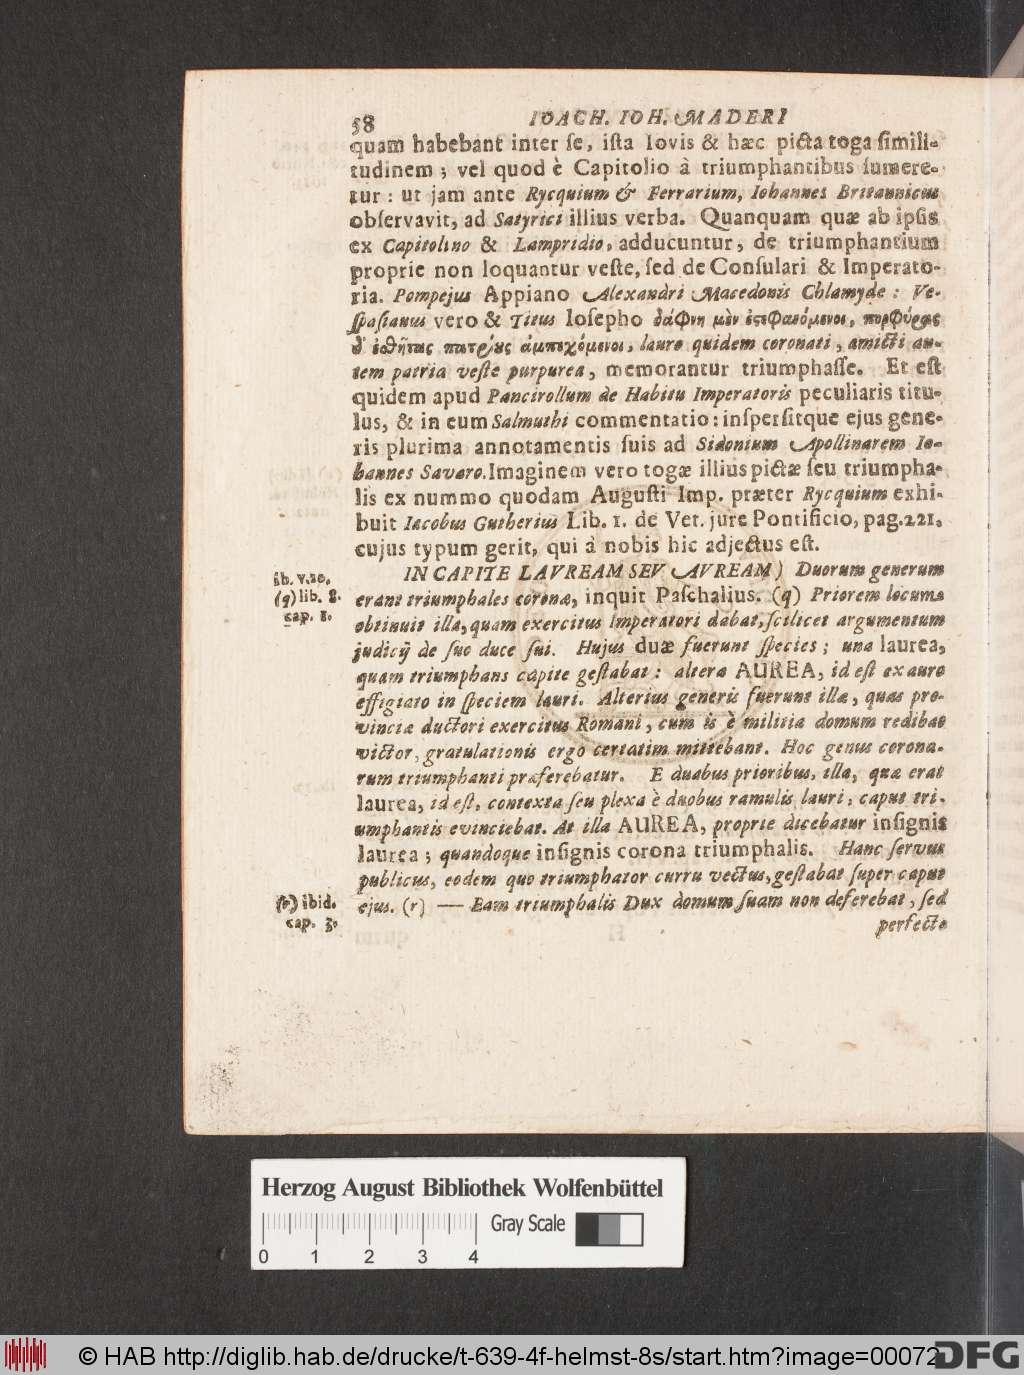 58 IOACH. IOH. MADERI
quam habebant inter ſe, iſta Iovis & hæc picta toga ſimili-
tudinem; vel quod è Capitolio à triumphantibus ſumere-
tur: ut jam ante Rycquium & Ferrarium, Iohannes Britannicus
obſervavit, ad Satyrici illius verba. Quanquam quæ ab ipſis
ex Capitolino & Lampridio, adducuntur, de triumphantium
proprie non loquantur veſte, ſed de Conſulari & Imperato-
ria. Pompejus Appiano Alexandri Macedonis Chlamyde: Ve-
ſpaſianus vero & Titus Ioſepho δάφνῃ μὲν ἐστεφανόμενοι, πορφύρας
δ᾽ ἐσθῆτας πατρίους ἀμπεχόμενοι, lauro quidem coronati, amicti au-
tem patria veſte purpurea, memorantur triumphaſſe. Et eſt
quidem apud Pancirollum de Habitu Imperatoris peculiaris titu-
lus, & in eum Salmuthi commentatio: inſperſitque ejus gene-
ris plurima annotamentis ſuis ad Sidonium Apollinarem Io-
hannes Savaro. Imaginem vero togæ illius pictæ ſeu triumpha-
lis ex nummo quodam Auguſti Imp. præter Rycquium exhi-
buit Iacobus Gutherius Lib. 1. de Vet. jure Pontificio, pag. 221.
cujus typum gerit, qui à nobis hic adjectus eſt.
IN CAPITE LAVREAM SEV AVREAM) Duorum generum
ib. v. 20.
(q) lib. 8.
cap. 1.
erant triumphales coronæ, inquit Paſchalius. (q) Priorem locum
obtinuit illa, quam exercitus Imperatori dabat, ſcilicet argumentum
judicij de ſuo duce ſui. Hujus duæ fuerunt ſpecies; una laurea,
quam triumphans capite geſtabat: altera AUREA, id eſt ex auro
effigiato in ſpeciem lauri. Alterius generis fuerunt illæ, quas pro-
vinciæ ductori exercitus Romani, cum is è militia domum redibat
victor, gratulationis ergo certatim mittebant. Hoc genus corona-
rum triumphanti præferebatur. E duabus prioribus, illa, quæ erat
laurea, id eſt, contexta ſeu plexa è duobus ramulis lauri, caput tri-
umphantis evinciebat. At illa AUREA, proprie dicebatur inſignis
laurea; quandoque inſignis corona triumphalis. Hanc ſervus
publicus, eodem quo triumphator curru vectus, geſtabat ſuper caput
ejus. (r) — Eam triumphalis Dux domum ſuam non deferebat, ſed
(r) ibid.
cap. 3.
perfecto
Herzog August Bibliothek Wolfenbüttel
Gray Scale
0 1 2 3 4
© HAB http://diglib.hab.de/drucke/t-639-4f-helmst-8s/start.htm?image=00072
DFG